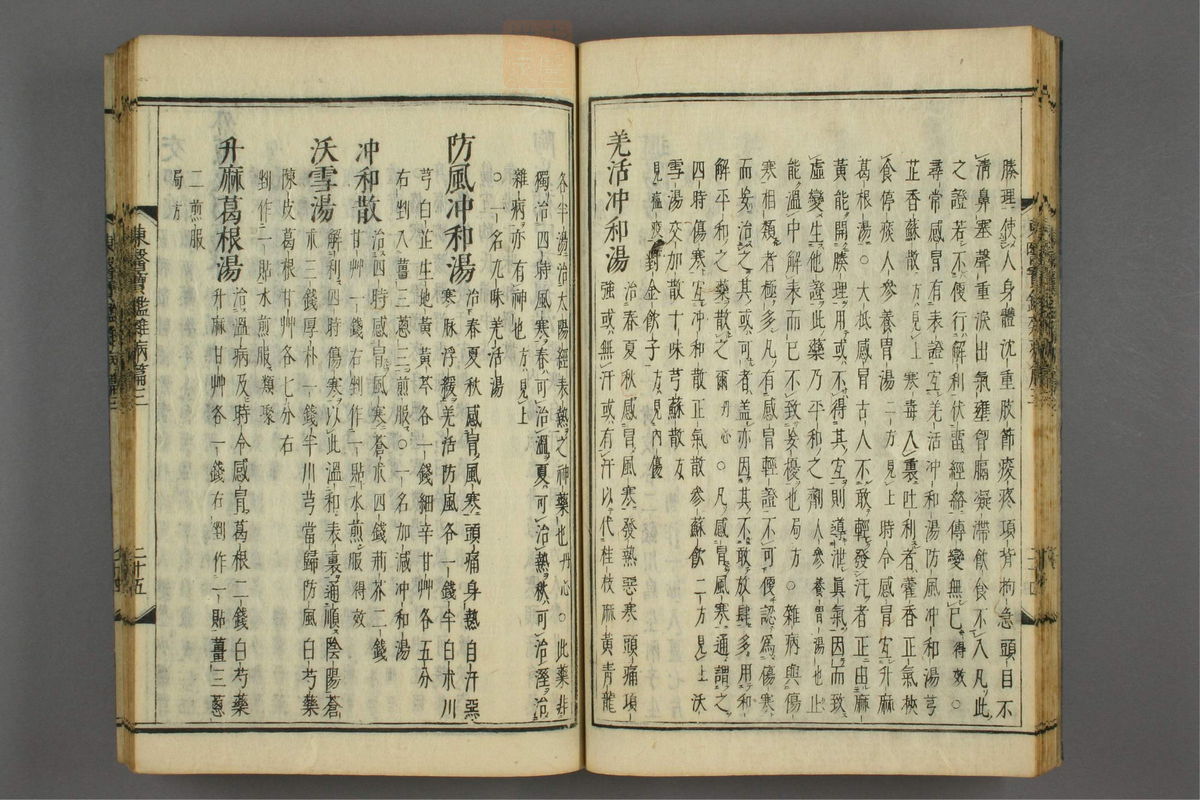 腠理使人身體沈重肢節痠疼項背拘急頭目不
淸鼻塞聲重淚出氣壅胷膈凝滯飮食不入凡此
之證若不便行解利伏留經絡傳變無已得效○
尋常感冒有表證宜羌活冲和湯防風冲和湯芎
芷香蘇散方見上寒毒入裏吐利者藿香正氣散
食停痰人參養胃湯二方見上時令感冒宜升麻
葛根湯○大抵感冒古人不敢輕發汗者正由麻
黃能開腠理用或不得其宜則導泄眞氣因而致
虛變生他證此藥乃平和之劑人參養胃湯也止
能溫中解表而已不致妄擾也局方○雜病與傷
寒相類者極多凡有感冒輕證不可便認爲傷寒
而妄治之其或可者盖亦因其不敢放肆多用和
解平和之藥散之爾丹心○凡感冒風寒通謂之
四時傷寒宜冲和散正氣散參蘇飮二方見上沃
雪湯交加散十味芎蘇散
對金飮子方見內傷
羌活冲和湯
治春夏秋感冒風寒發熱惡寒頭痛項
強或無汗或有汗以代桂枝麻黃靑龍
各半湯治太陽經表熱之神藥也丹心○此藥非
獨治四時風寒春可治溫夏可治熱秋可治溼治
雜病亦有神也方見上
○一名九味羌活湯
防風冲和湯
治春夏秋感冒風寒頭痛身熱自汗惡
寒脉浮緩羌活防風各一錢半白朮川
芎白芷生地黃黃芩各一錢細辛甘艸各五分
右剉入薑三蔥三煎服○一名加減冲和湯
冲和散
治四時感冒風寒蒼朮四錢荊芥二錢
甘艸一錢右剉作一貼水煎服得效
沃雪湯
解利四時傷寒以此溫和表裏通順陰陽蒼
朮三錢厚朴一錢半川芎當歸防風白芍藥
陳皮葛根甘艸各七分右
剉作二貼水煎服類聚
升麻葛根湯
治溫病及時令感冒葛根二錢白芍藥
升麻甘艸各一錢右剉作一貼薑三蔥
二煎服
局方
東醫寶鑑雜病篇三
二十五